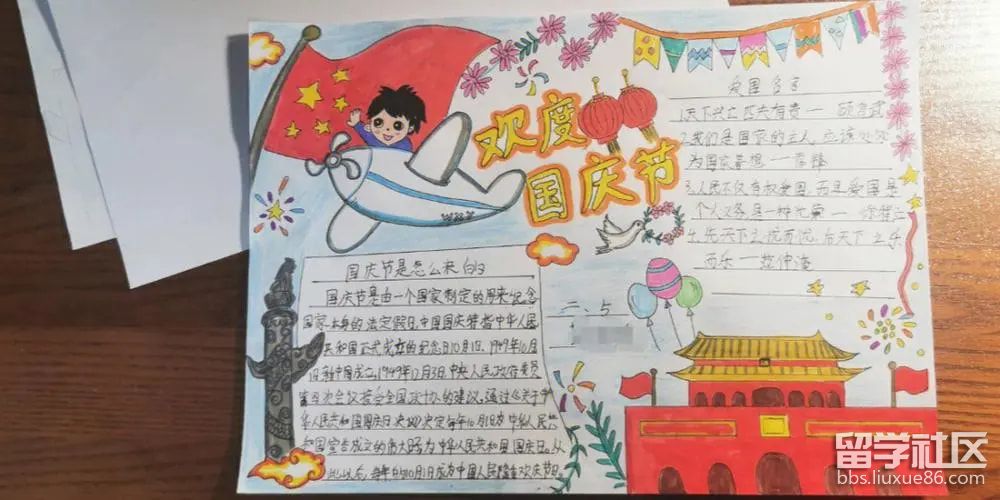 欢度
国庆节
爱国名言
1.天下兴亡匹夫有责一 顾炎武
2.我们是国家的主人,应该处处
为国家着想一雷锋
3.人民不仅有权爱国,而且爱国是
个人义务是一种光荣一
4.先天下之忧而忧,后天下之乐
而乐一范仲淹
国庆节是怎么来的
国庆节是由一个国家制定的用来纪念
国家本身的法定假日,中国国庆特指中华人民
共和国正式成立的纪念日10月1日,1949年10月
1日新中国成立,1949年12月3日,中央人民政府委员
第四次会议接受全国政协的建议,通过《关于中
华人民共和国国庆日决议》决定每年10月1日为中华人民共
和国宣告成立的伟大日为中华人民共和国国庆日。从
此以后,每年的10月1日成为中国人民隆重欢庆节日
二、5
留学社区
bbs.liuxue86.com